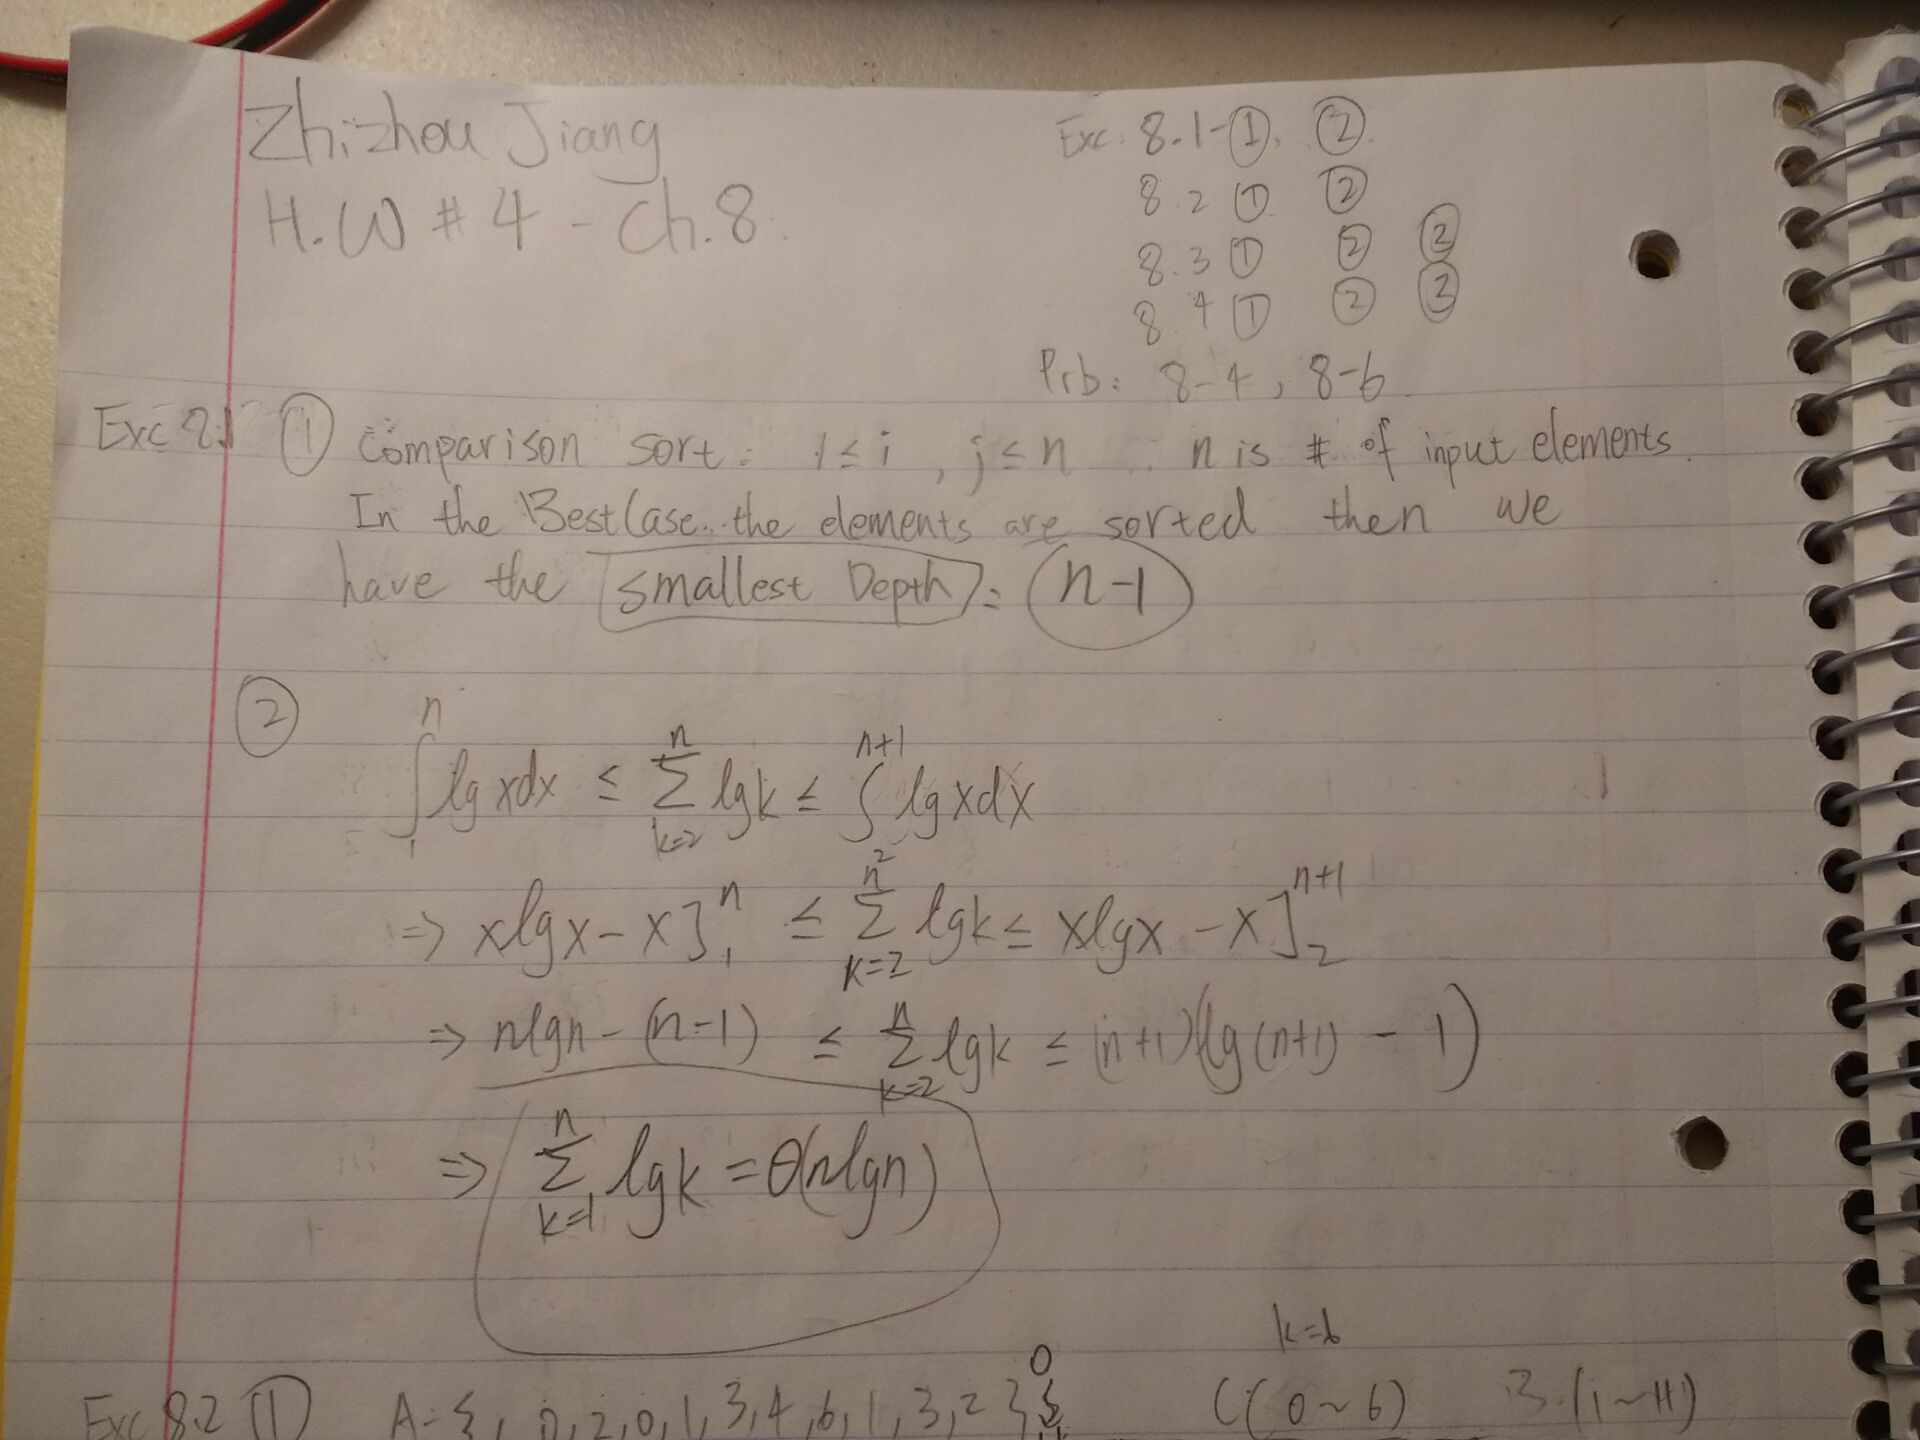 Zhizhou Jiang
H.W # 4 - Ch.8.
Exc: 8.1-①, ②
8.2 ① ②
8.3 ① ② ②
8.4 ① ② ②
Prb: 8-4, 8-6
Exc 8.1 ① Comparison sort: 1≤i, j≤n n is # of input elements.
In the BestCase. the elements are sorted then we
have the smallest Depth = n-1
② ∫₁ⁿ lg xdx ≤ Σ_{k=2}^{n} lgk ≤ ∫₂^{n+1} lg xdx
⇒ xlgx - x]₁ⁿ ≤ Σ_{k=2}^{n} lgk ≤ xlgx - x]₂^{n+1}
⇒ nlgn - (n-1) ≤ Σ_{k=2}^{n} lgk ≤ (n+1)(lg(n+1) - 1)
⇒ Σ_{k=1}^{n} lgk = θ(nlgn)
k=6
Exc 8.2 ① A= 0,2,0,1,3,4,6,1,3,2 } C(0~6) (1~11)